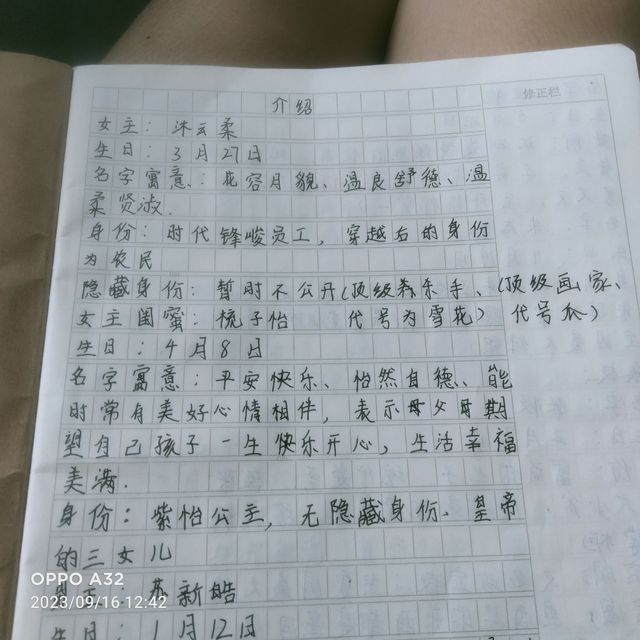 介绍
修正栏
女主：沐云柔
生日：3月27日
名字寓意：花容月貌、温良舒德、温
柔贤淑.
身份：时代锋峻员工，穿越后的身份
为农民
隐藏身份：暂时不公开(顶级杀手、(顶级画家、
女主闺蜜：梳子怡 代号为雪花) 代号
生日：4月8日
名字寓意：平安快乐、怡然自德、能
时常有美好心情相伴，表示母父母期
望自己孩子一生快乐开心，生活幸福
美满.
身份：紫怡公主，无隐藏身份. 皇帝
的三女儿
主：苏新皓
生日：1月12日
OPPO A32
2023/09/16 12:42